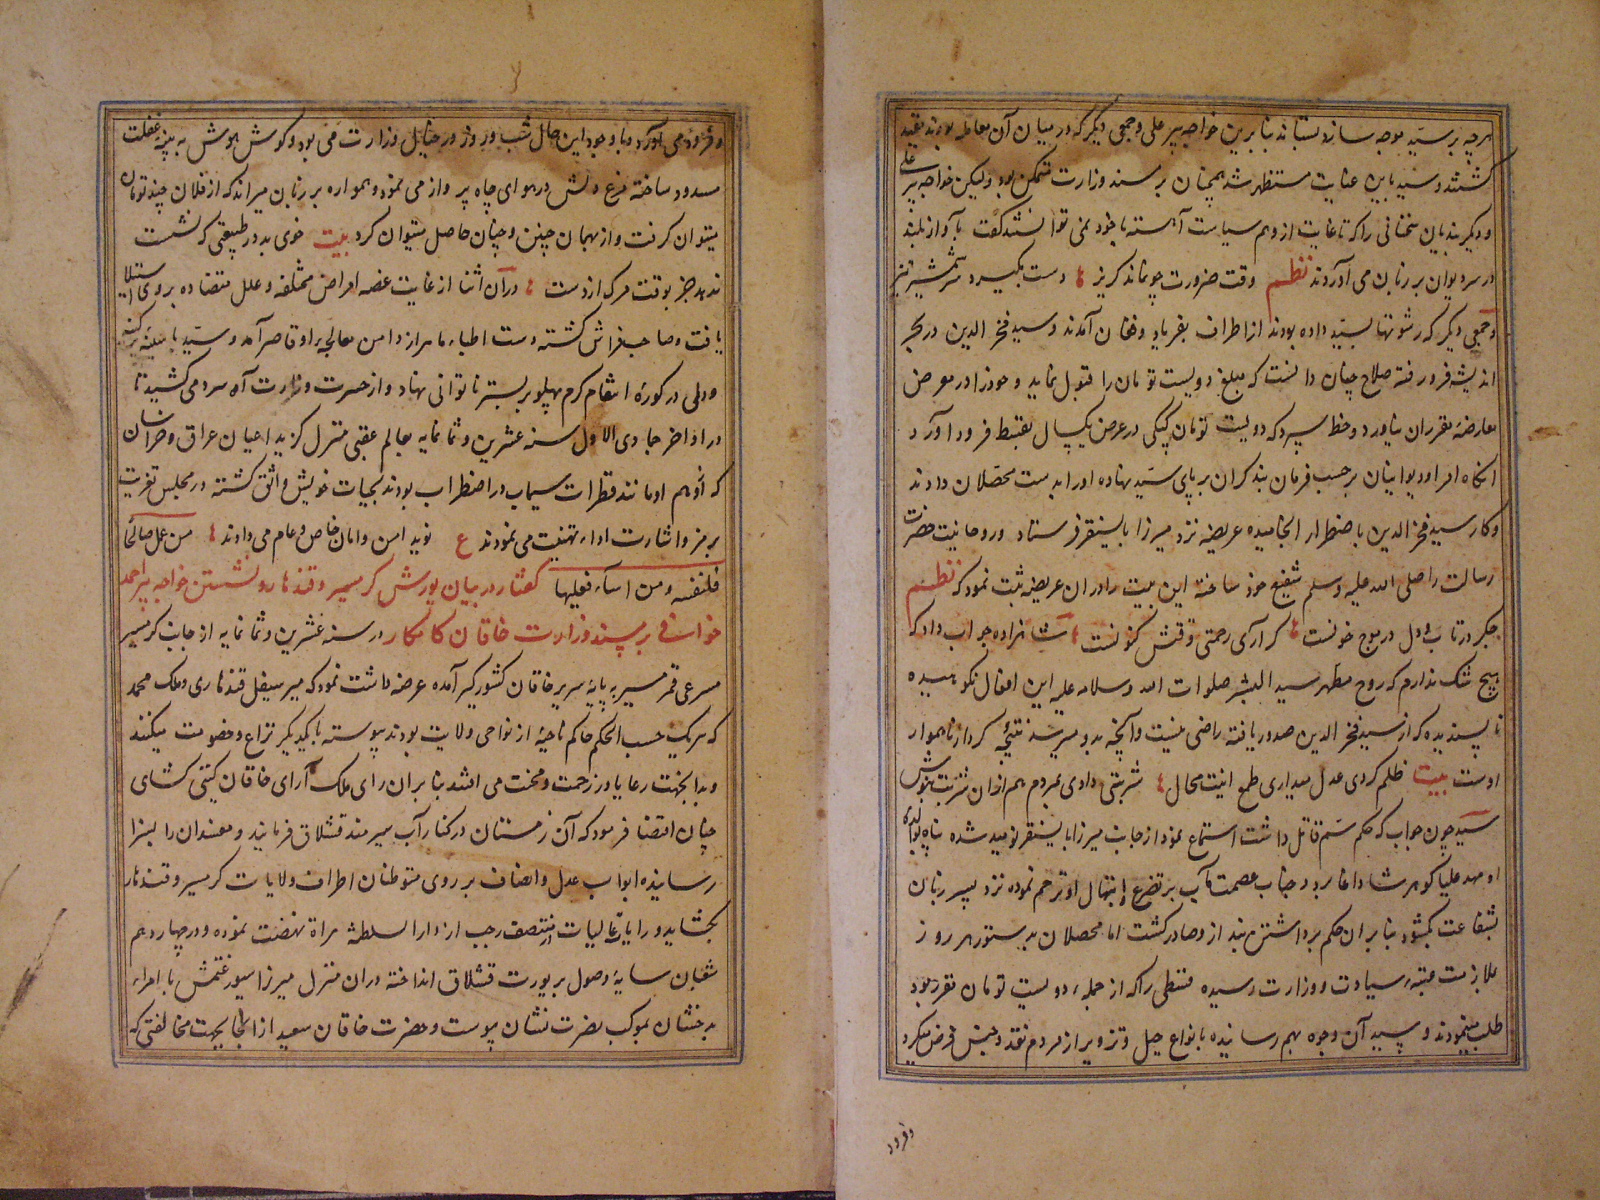 هرچه بر سید موجه سازند بستاند بنابرین خواجه پیر علی و جمعی دیگر که در میان آن معامله بودند مقید
کشتند و سید باین عنایت مستظهر شد همچنان بر مسند وزارت متمکن بود و لیکن خواجه پیر علی
و دیگر بندیان سخنانی را که تا غایت از وهم سیاست آهسته با خود نمی توانستند گفت بآواز بلند
در سر دیوان بر زبان می آوردند نظم وقت ضرورت چو نماند کریز دست بگیرد سر شمشیر تیز
و جمعی دیگر که رشوتها بسید داده بودند از اطراف بفریاد و فغان آمدند و سید فخر الدین در بحر
اندیشه فرو رفته صلاح چنان دانست که مبلغ دویست تومان را قبول نماید و خود را در معرض
معارضه مقرران نیاورد و خط سپرد که دویست تومان کپکی در عرض یکسال بقسط فرود آورد
انکاه امرا و دیوانیان بر حسب فرمان بند کران بر پای سید نهاده او را بدست محصلان دادند
و کار سید فخر الدین باضطرار انجامیده عریضه نزد میرزا بایسنقر فرستاد و روحانیت حضرت
رسالت را صلی الله علیه وسلم شفیع خود ساخته این بیت را در ان عریضه ثبت نمود که نظم
جکر در تاب و دل در موج خونست کر آری رحمتی وقتش کنونست شاهزاده جواب داد که
هیچ شک ندارم که روح مطهر سید البشر صلوات الله وسلامه علیه این افعال نکوهیده
ناپسندیده که از سید فخر الدین صدور یافته راضی نیست و آنچه بدو میرسد نتیجه کردار ناهموار
اوست بیت ظلم کردی عدل میداری طمع اینت محال شربتی دادی بمردم هم ازان شربت بنوش
سید چون جواب که حکم سم قاتل داشت استماع نمود از جانب میرزا بایسنقر نومید شده پناه بوالده
او مهد علیا کوهرشاد اغا برد و جناب عصمت مآب بر تضرع و ابتهال او ترحم نموده نزد پسر زبان
بشفاعت بکشود بنابر ان حکم برداشتن بند ازو صادر کشت اما محصلان بدستور هر روز
ملازمت عتبه سیادت و وزارت رسیده قسطی را که از جمله دویست تومان مقرر بود
طلب مینمودند و سید آن وجوه بهم رسانیده بانواع حیل و تزویر از مردم نقد و جنس قرض میکرد
و فرود
و فرود می آورد و با وجود این حال شب و روز در خیال وزارت می بود و کوش هوش به پنبه غفلت
مسدود ساخته مرغ دلش در هوای جاه پرواز می نمود و همواره بر زبان میراند که از فلان چند تومان
میتوان کرفت و از بهمان چنین و چنان حاصل میتوان کرد بیت خوی بد در طبیعتی که نشست
ندهد جز بوقت مرک از دست در آن اثنا از غایت غصه امراض مختلفه و علل متضاده بر وی استیلا
یافت و صاحب فراش کشته دست اطباء ماهر از دامن معالجه او قاصر آمد و سید با سینه پر کینه
و دلی در کوره انتقام کرم پهلو بر بستر ناتوانی نهاد و از حسرت وزارت آه سرد می کشید تا
در اواخر جمادی الاول سنه عشرین و ثمانمایه بعالم عقبی منزل کزید اعیان عراق و خراسان
که از وهم او مانند قطرات سیماب در اضطراب بودند بحیات خویش واثق کشته در مجلس تعزیت
برمز و اشارت اداء تهنیت می نمودند ع نوید امن و امان خاص و عام می دادند من عمل صالحا
فلنفسه ومن اساء فعلیها کفتار در بیان یورش کرمسیر و قندهار و نشستن خواجه پیر احمد
خوافی بر مسند وزارت خاقان کامکار در سنه عشرین و ثمانمایه از جانب کرمسیر
مسرعی قمر مسیر به پایه سریر خاقان کشور کیر آمده عرضه داشت نمود که میر سیفل قندهاری و ملک محمد
که هریک حسب الحکم حاکم ناحیه از نواحی ولایت بودند پیوسته با یکدیکر نزاع و خصومت میکنند
و بدانجهت رعایا در زحمت و محنت می افتند بنابران رای ملک آرای خاقان کیتی کشای
چنان اقتضا فرمود که آن زمستان در کنار آب هیرمند قشلاق فرمایند و مفسدان را بسزا
رسانیده ابواب عدل و انصاف بر روی متوطنان اطراف ولایات کرمسیر و قندهار
بکشاید و رایات عالیات در منتصف رجب از دار السلطنه هراة نهضت نموده و در چهاردهم
شعبان سایه وصول بر یورت قشلاق انداخته دران منزل میرزا سیورغتمش با امراء
بدخشان بموکب نصرت نشان پیوست و حضرت خاقان سعید از انجا بجهت مخالفتی که